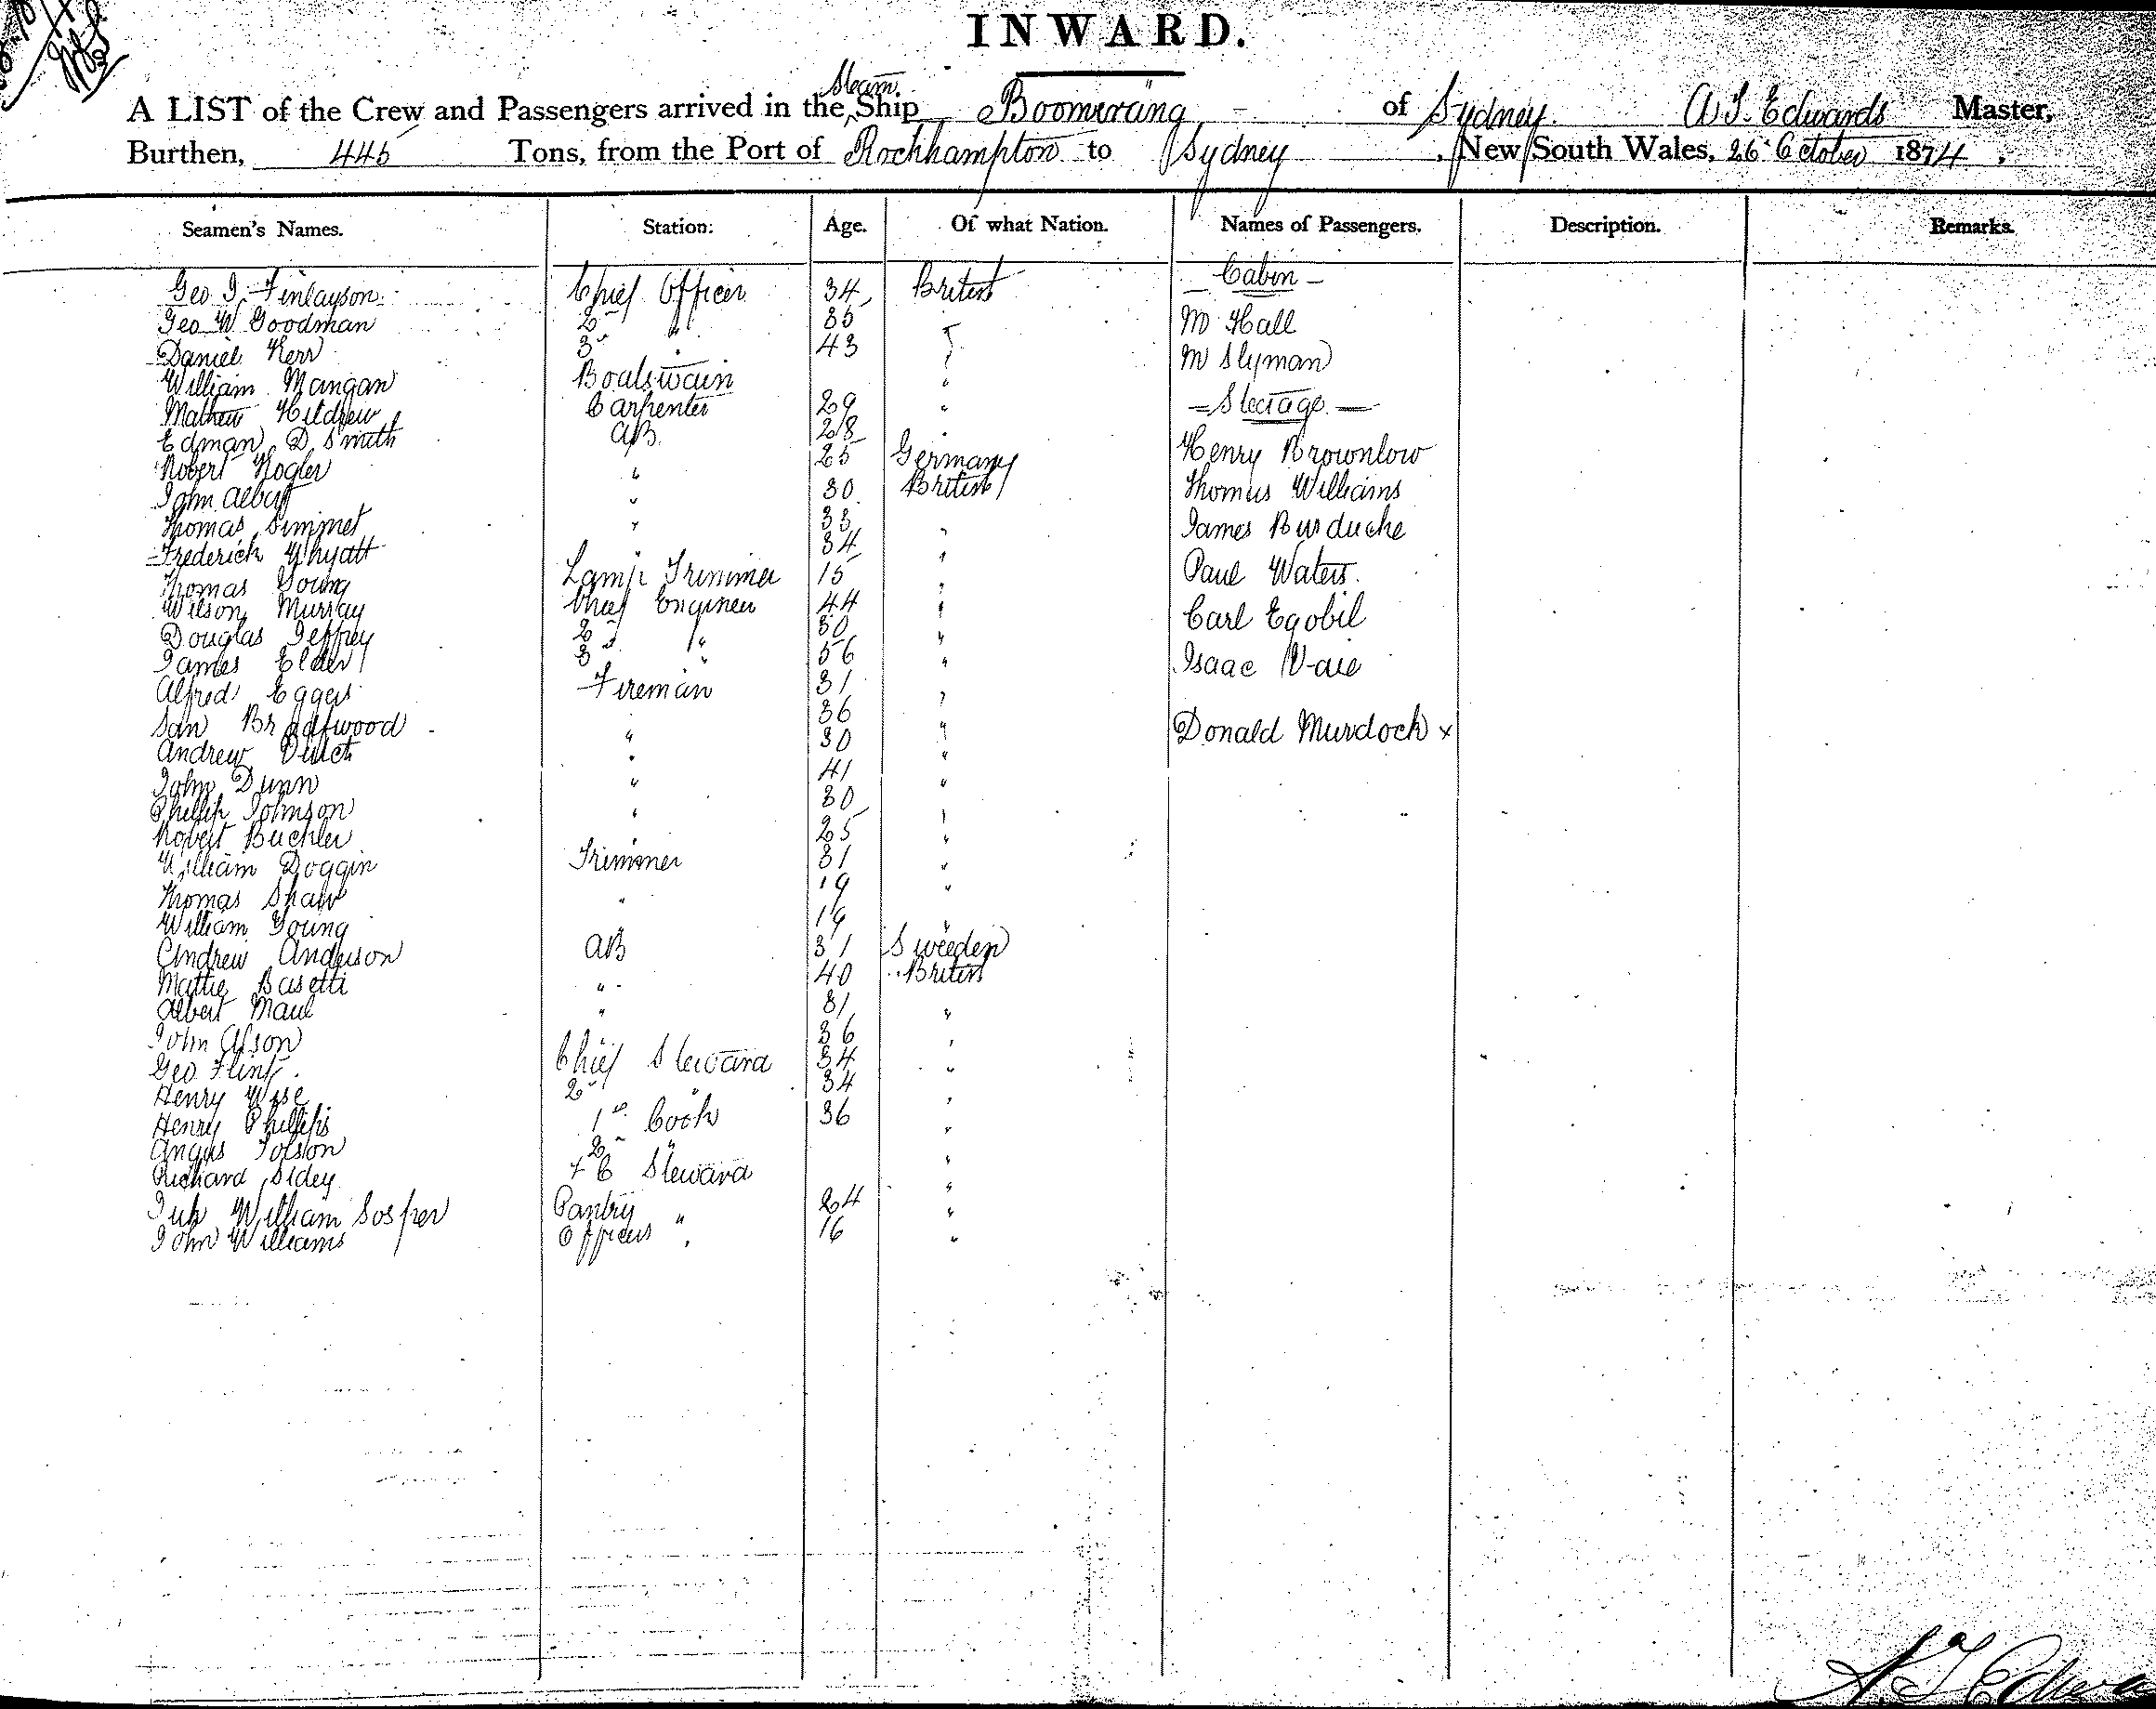 INWARD.
A LIST of the Crew and Passengers arrived in the Steam Ship Boomerang of Sydney A T Edwards Master,
Burthen, 445 Tons, from the Port of Rockhampton to Sydney, New South Wales, 26 October 1874,
Seamen's Names. Station. Age. Of what Nation. Names of Passengers. Description. Remarks.
Geo Finlayson Chief Officer 34 British — Cabin —
Geo W Goodman 2 " 35 " M Hall
Daniel Kerr 3 " 43 " M Slyman
William Mangan Boatswain "
Mathew Hildrew Carpenter 29 " — Steerage —
Edman D Smith AB 28 "
Robert Kogler " 25 Germany Henry Brownlow
John Albert " 30 British Thomas Williams
Thomas Simmet " 33 " James Burduche
Frederick Whyatt " 34 "
Thomas Young Lamp Trimmer 15 " Paul Waters
Wilson Murray Chief Engineer 44 " Carl Egobil
Douglas Jeffrey 2 " 30 "
James Elder 3 " 56 " Isaac
Alfred Eggers Fireman 31 "
Broadwood " 36 " Donald Murdock x
Andrew " 30 "
John Dunn " 41 "
Phillip Johnson " 30 "
Robert Buchler " 25 "
William Doggin Trimmer 31 "
Thomas Shaw " 19 "
William Young " 19 "
Andrew Anderson AB 31 Sweeden
Mattie Basetti " 40 British
Albert Maul " 31 "
John Olson " 36 "
Geo Flint Chief Steward 34 "
Henry Wise 2 " 34 "
Henry Phillips 1st Cook 36 "
Angus 2 " "
Richard Sidey Steward "
William Sosper Pantry " 24 "
John Williams Officers " 16 "
A T Edwa